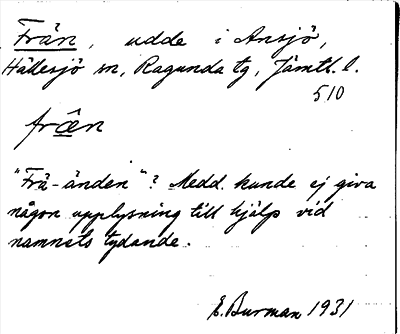 Från, udde i Ansjö,
Hällesjö sn, Ragunda tg, Jämtl. l.
510
frœn
"Frä-änden"? Medd. kunde ej giva
någon upplysning till hjälp vid
namnets tydande.
E. Burman 1931